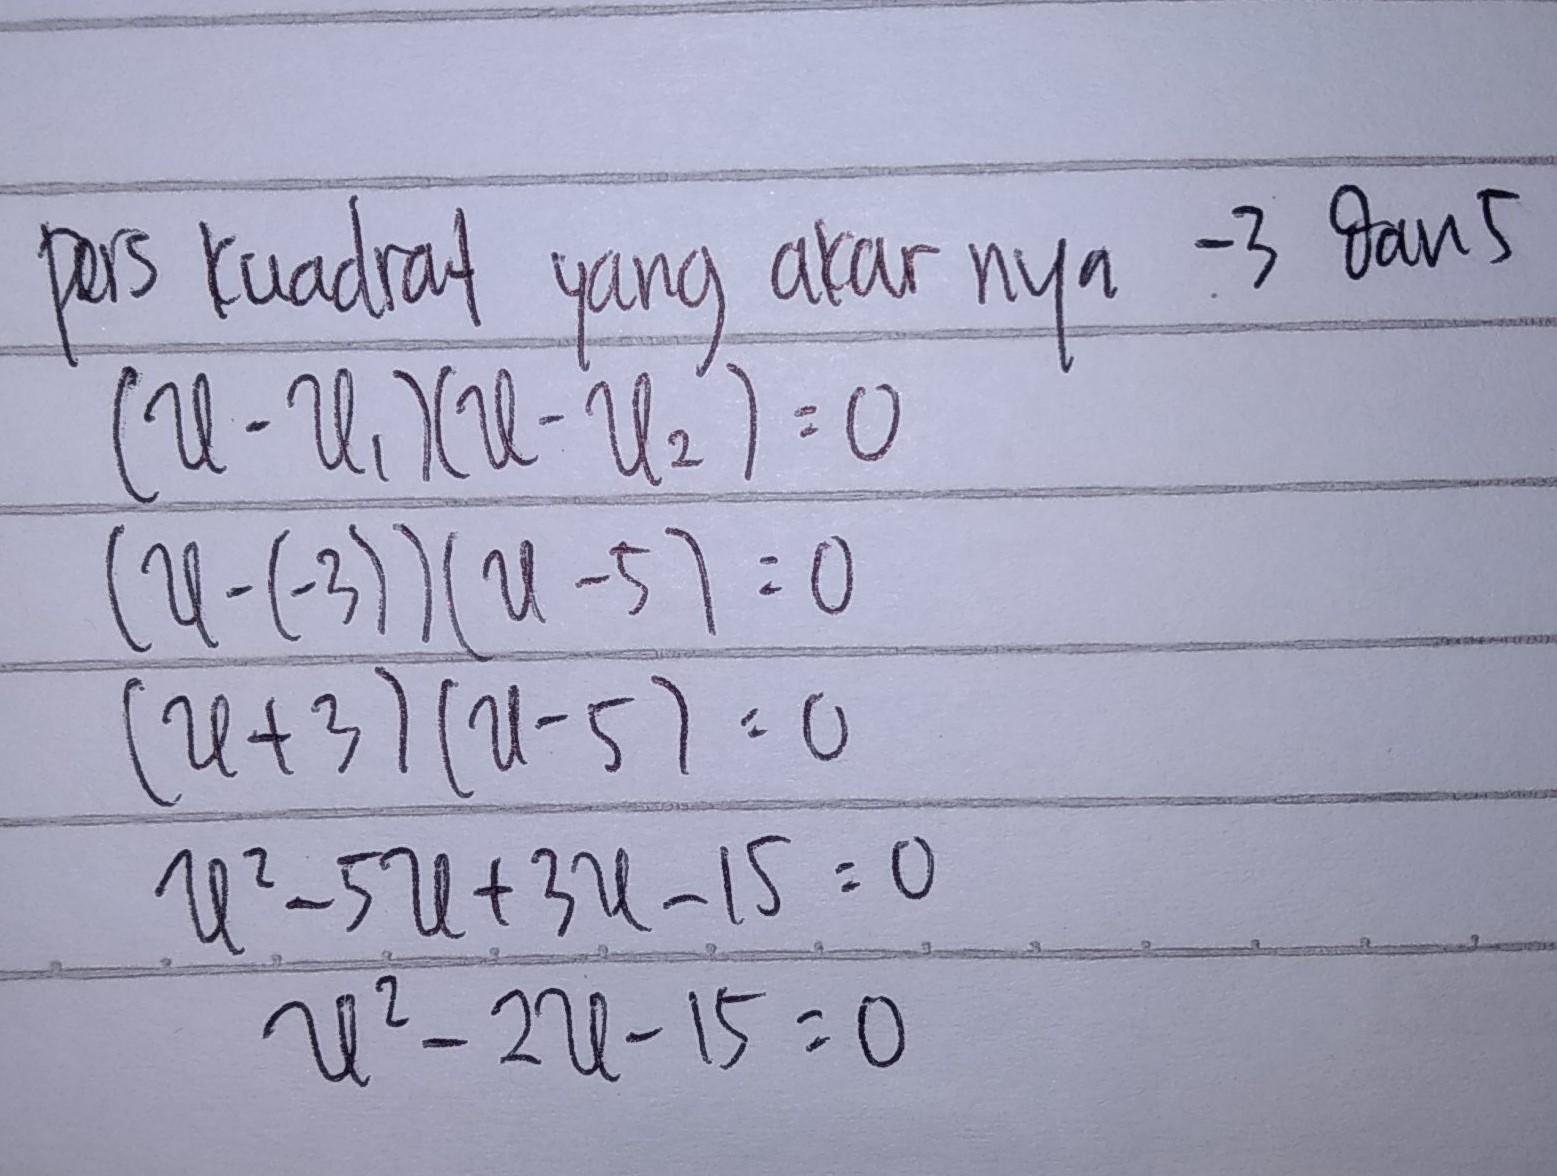 pers kuadrat yang akar nya -3 dan 5
(x-x₁)(x-x₂)=0
(x-(-3))(x-5)=0
(x+3)(x-5)=0
x²-5x+3x-15=0
x²-2x-15=0